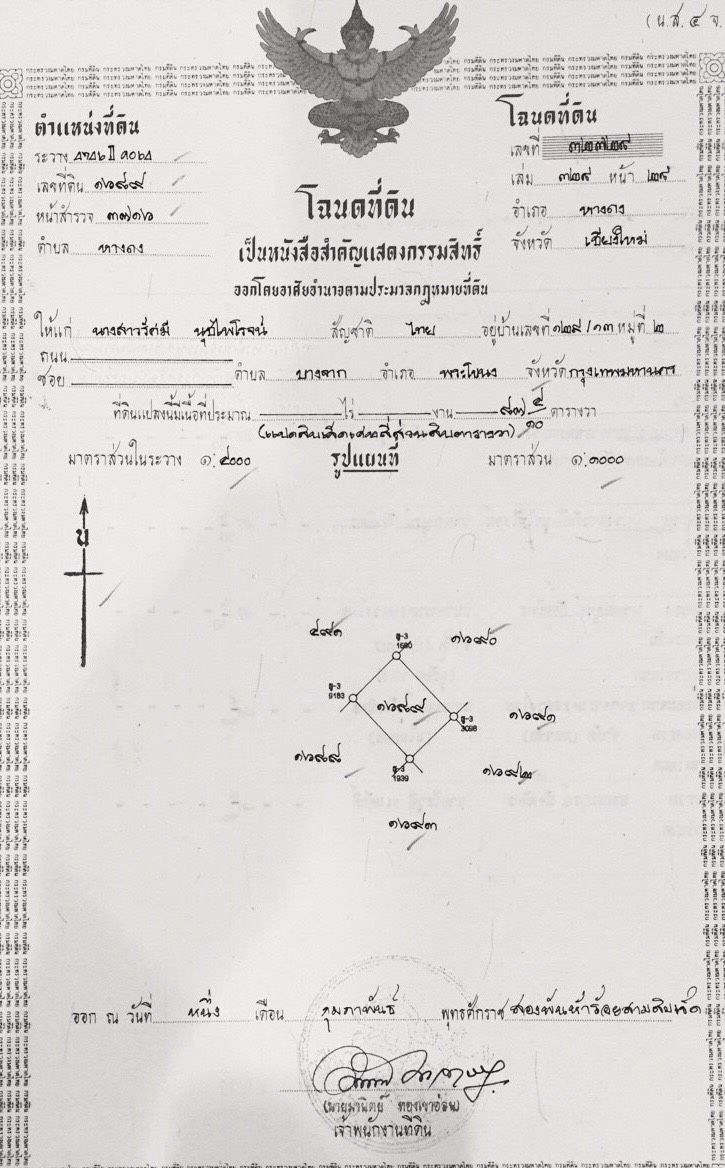 (น.ส. ๔ จ.
ตำแหน่งที่ดิน
ระวาง ๔๗๔๖ II ๑๐๖๔
เลขที่ดิน ๑๖๘๙
หน้าสำรวจ ๓๗๑๖
ตำบล หางดง
โฉนดที่ดิน
เลขที่
เล่ม ๓๒๙ หน้า ๒๙
อำเภอ หางดง
จังหวัด เชียงใหม่
โฉนดที่ดิน
เป็นหนังสือสำคัญแสดงกรรมสิทธิ์
ออกโดยอาศัยอำนาจตามประมวลกฎหมายที่ดิน
ให้แก่ นางสาวรัศมี นุชไพโรจน์ สัญชาติ ไทย อยู่บ้านเลขที่ ๑๒๙/๑๓ หมู่ที่ ๒
ถนน
ซอย ตำบล บางจาก อำเภอ พระโขนง จังหวัด กรุงเทพมหานคร
ที่ดินแปลงนี้มีเนื้อที่ประมาณ ไร่ งาน ๘๗ ๔/๑๐ ตารางวา
(แปดสิบเจ็ดเศษสี่ส่วนสิบตารางวา)
มาตราส่วนในระวาง ๑:๔๐๐๐ รูปแผนที่ มาตราส่วน ๑:๑๐๐๐
น
๔๙๑
ชู-3
1680
๑๖๙๐
ชู-3
9183
๑๖๘๙
ชู-3
3098
๑๖๙๑
๑๖๘๘
ชู-3
1939
๑๖๙๒
๑๖๙๓
ออก ณ วันที่ หนึ่ง เดือน กุมภาพันธ์ พุทธศักราช สองพันห้าร้อยสามสิบเจ็ด
(นายมานิตย์ ทองเจาอ่อน)
เจ้าพนักงานที่ดิน